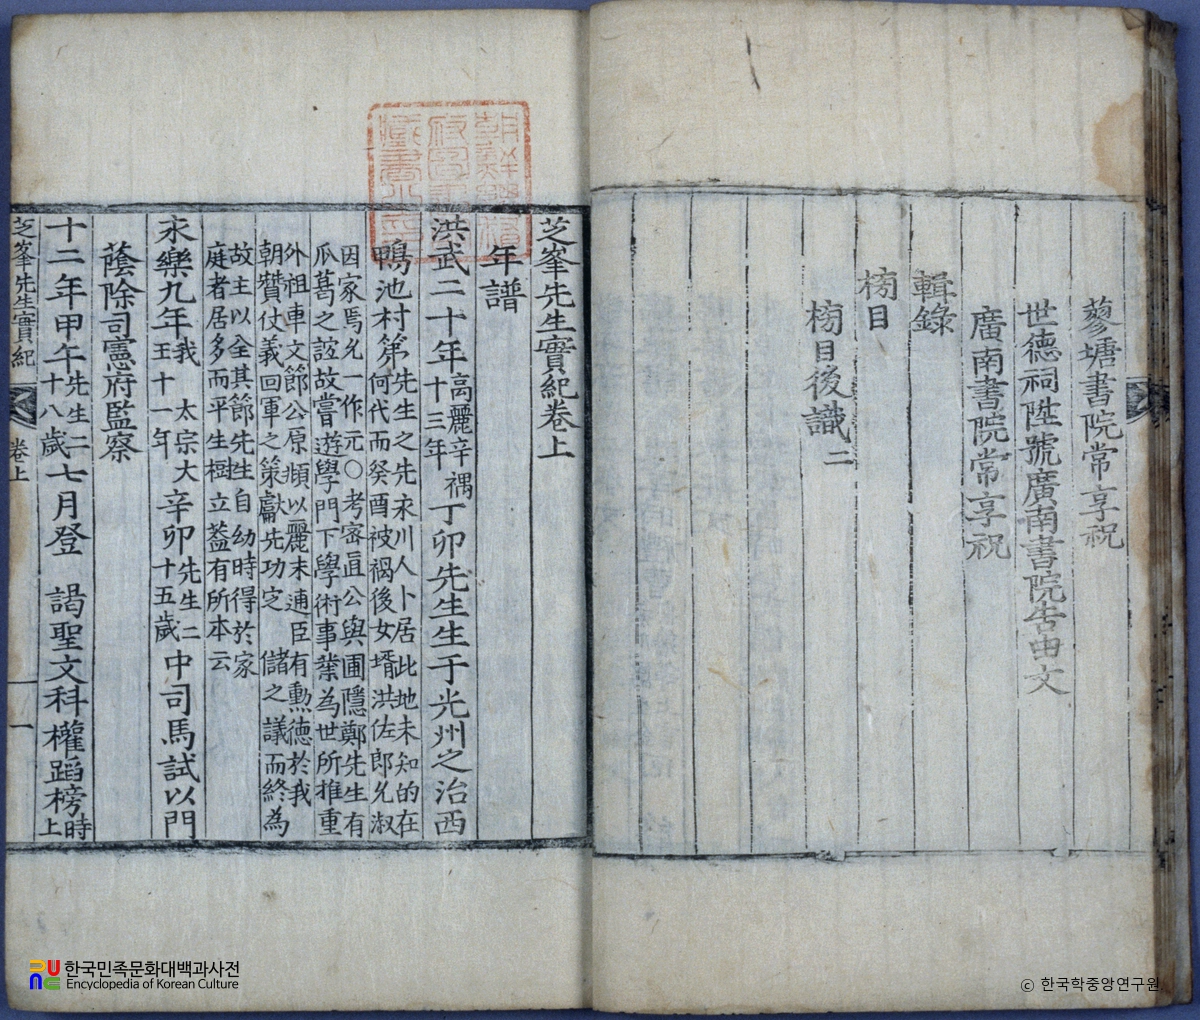 蓼塘書院常享祝
世德祠陞號廣南書院告由文
廣南書院常享祝
輯錄
榜目
榜目後識二
芝峯先生實紀卷上
年譜
洪武二十年高麗辛禑十三年丁卯先生生于光州之治西
鴨池村第先生之先永川人卜居此地未知的在
何代而癸酉被禍後女壻洪佐郎允淑
因家焉允一作元○考審直公與圃隱鄭先生有
瓜葛之誼故嘗遊學門下學術事業為世所推重
外祖車文節公原頫以麗末逋臣有勲德於我
朝贊仗義回軍之策獻先功定 儲之議而終為
故主以全其節先生自幼時得於家
庭者居多而平生樹立葢有所本云
永樂九年我 太宗大王十一年辛卯先生二十五歲中司馬試以門
蔭除司憲府監察
十二年甲午先生二十八歲七月登 謁聖文科權蹈榜時上
芝峯先生實紀 卷上 一
한국민족문화대백과사전
Encyclopedia of Korean Culture
ⓒ 한국학중앙연구원